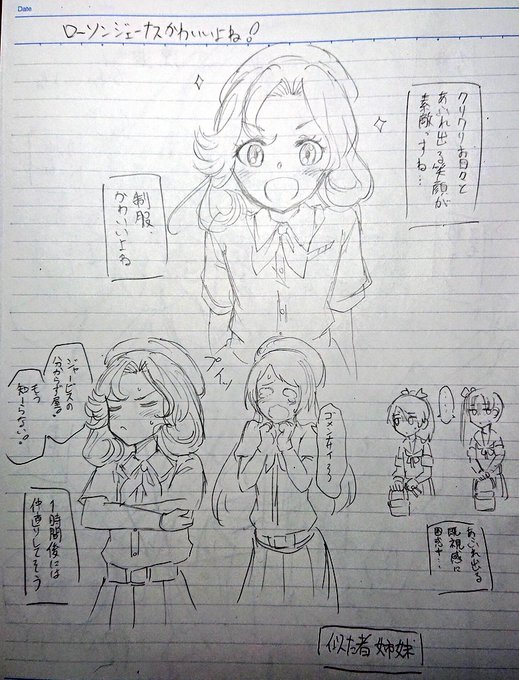 Date
ローソンジェーナスかわいいよね!
クリクリお目々と
あふれ出る笑顔が
素敵すね…
制服、
かわいいよね
プイッ
ジャービスの
分からず屋!
もう
知ーらない!
ゴメンナサイ
1時間後には
仲直りしてそう
…
あふれ出る
既視感に
困惑中…
似た者姉妹